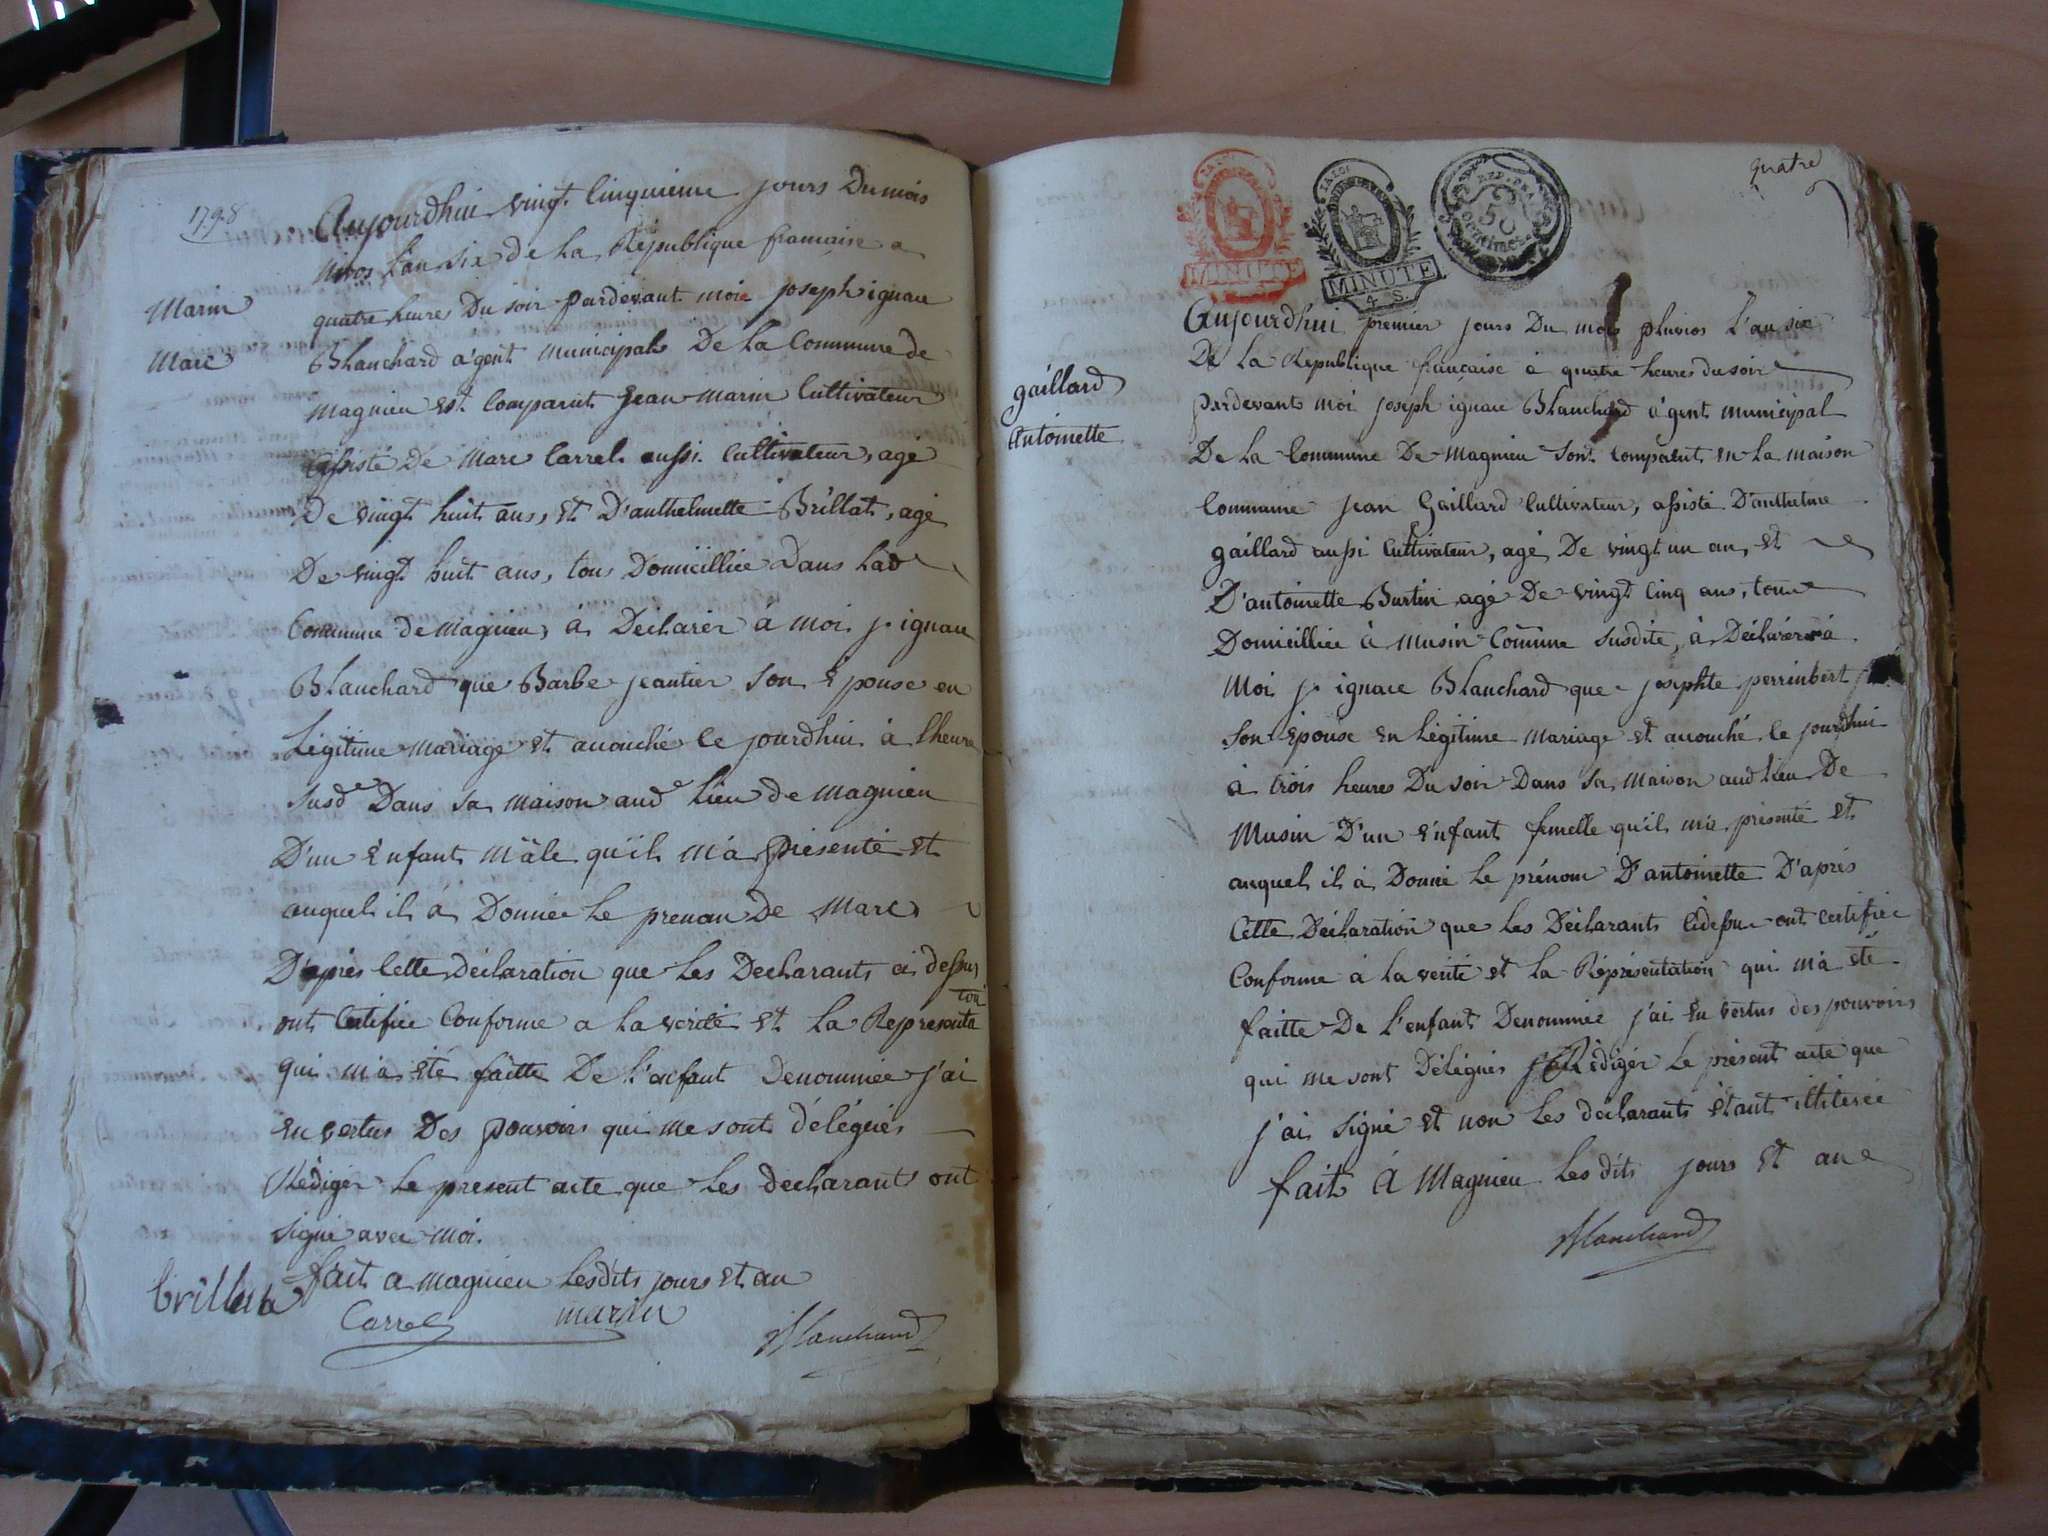 1798
Marin
Marc
Aujourdhui vingt Cinquieme jours Du mois
nivos L'an six de La République francaise a
quatre heures Du soir pardevant moi joseph ignace
Blanchard agent municipal De La Commune de
magnieu est Comparut jean marin Cultivateur
assisté De Marc Carrel aussi Cultivateur, agé
De vingt huit ans, et D'anthelmette Brillat, agé
De vingt huit ans, tous Domicilliée Dans Lad
Commune de magnieu, à Déclarer à moi j. ignace
Blanchard que Barbe jeantier son Epouse en
Légitime mariage et acouché ce jourdhui à lheure
susde Dans sa maison aude lieu de magnieu
D'un Enfant mâle qu'il m'a présenté et
auquel il à Donnée Le prenom De Marc
D'après Cette Déclaration que Les Declarants ci dessus
ont Certifiée Conforme a la verité et La Representa
tion
qui m'a été faitte De L'enfant Denommée j'ai
en vertus Des pouvoirs qui me sont délégués
Rédiger Le present acte que Les déclarants ont
signé avec moi.
fait a magnieu Lesdits jours et an
brillat Carrel marin Blanchard
quatre
LA LOI
LA LOI
MINUTE
4 S.
REP. FRA.
50
centimes
gaillard
Antoinette
Aujourdhui premier jours Du mois pluvios L'an six
De La Republique française à quatre heures du soir
pardevant moi joseph ignace Blanchard agent municipal
De La Commune De magnieu sont comparut en La maison
Commune jean Gaillard Cultivateur, assisté D'anthelme
gaillard aussi Cultivateur, agé De vingt un an, et
D'antoinette Burtin agé De vingt Cinq ans, tous
Domicilliée à musin Commune susdite, à Déclarer à
Moi j. ignace Blanchard que josephte perrinbert
son Epouse en Légitime mariage et acouché ce jourdhui
à trois heures Du soir Dans sa maison aud lieu De
Musin D'un Enfant femelle qu'il m'a présenté et
auquel il à Donné Le prénom D'antoinette D'aprés
Cette Déclaration que Les Déclarants cidessus ont certifiée
Conforme à la verité et La Réprésentation qui m'a été
faitte De L'enfant Denommée j'ai en vertus des pouvoirs
qui me sont Délégués Rédiger Le présent acte que
j'ai signé et non Les déclarants étant illiterée
fait à Magnieu Les dits jours et an
Blanchard